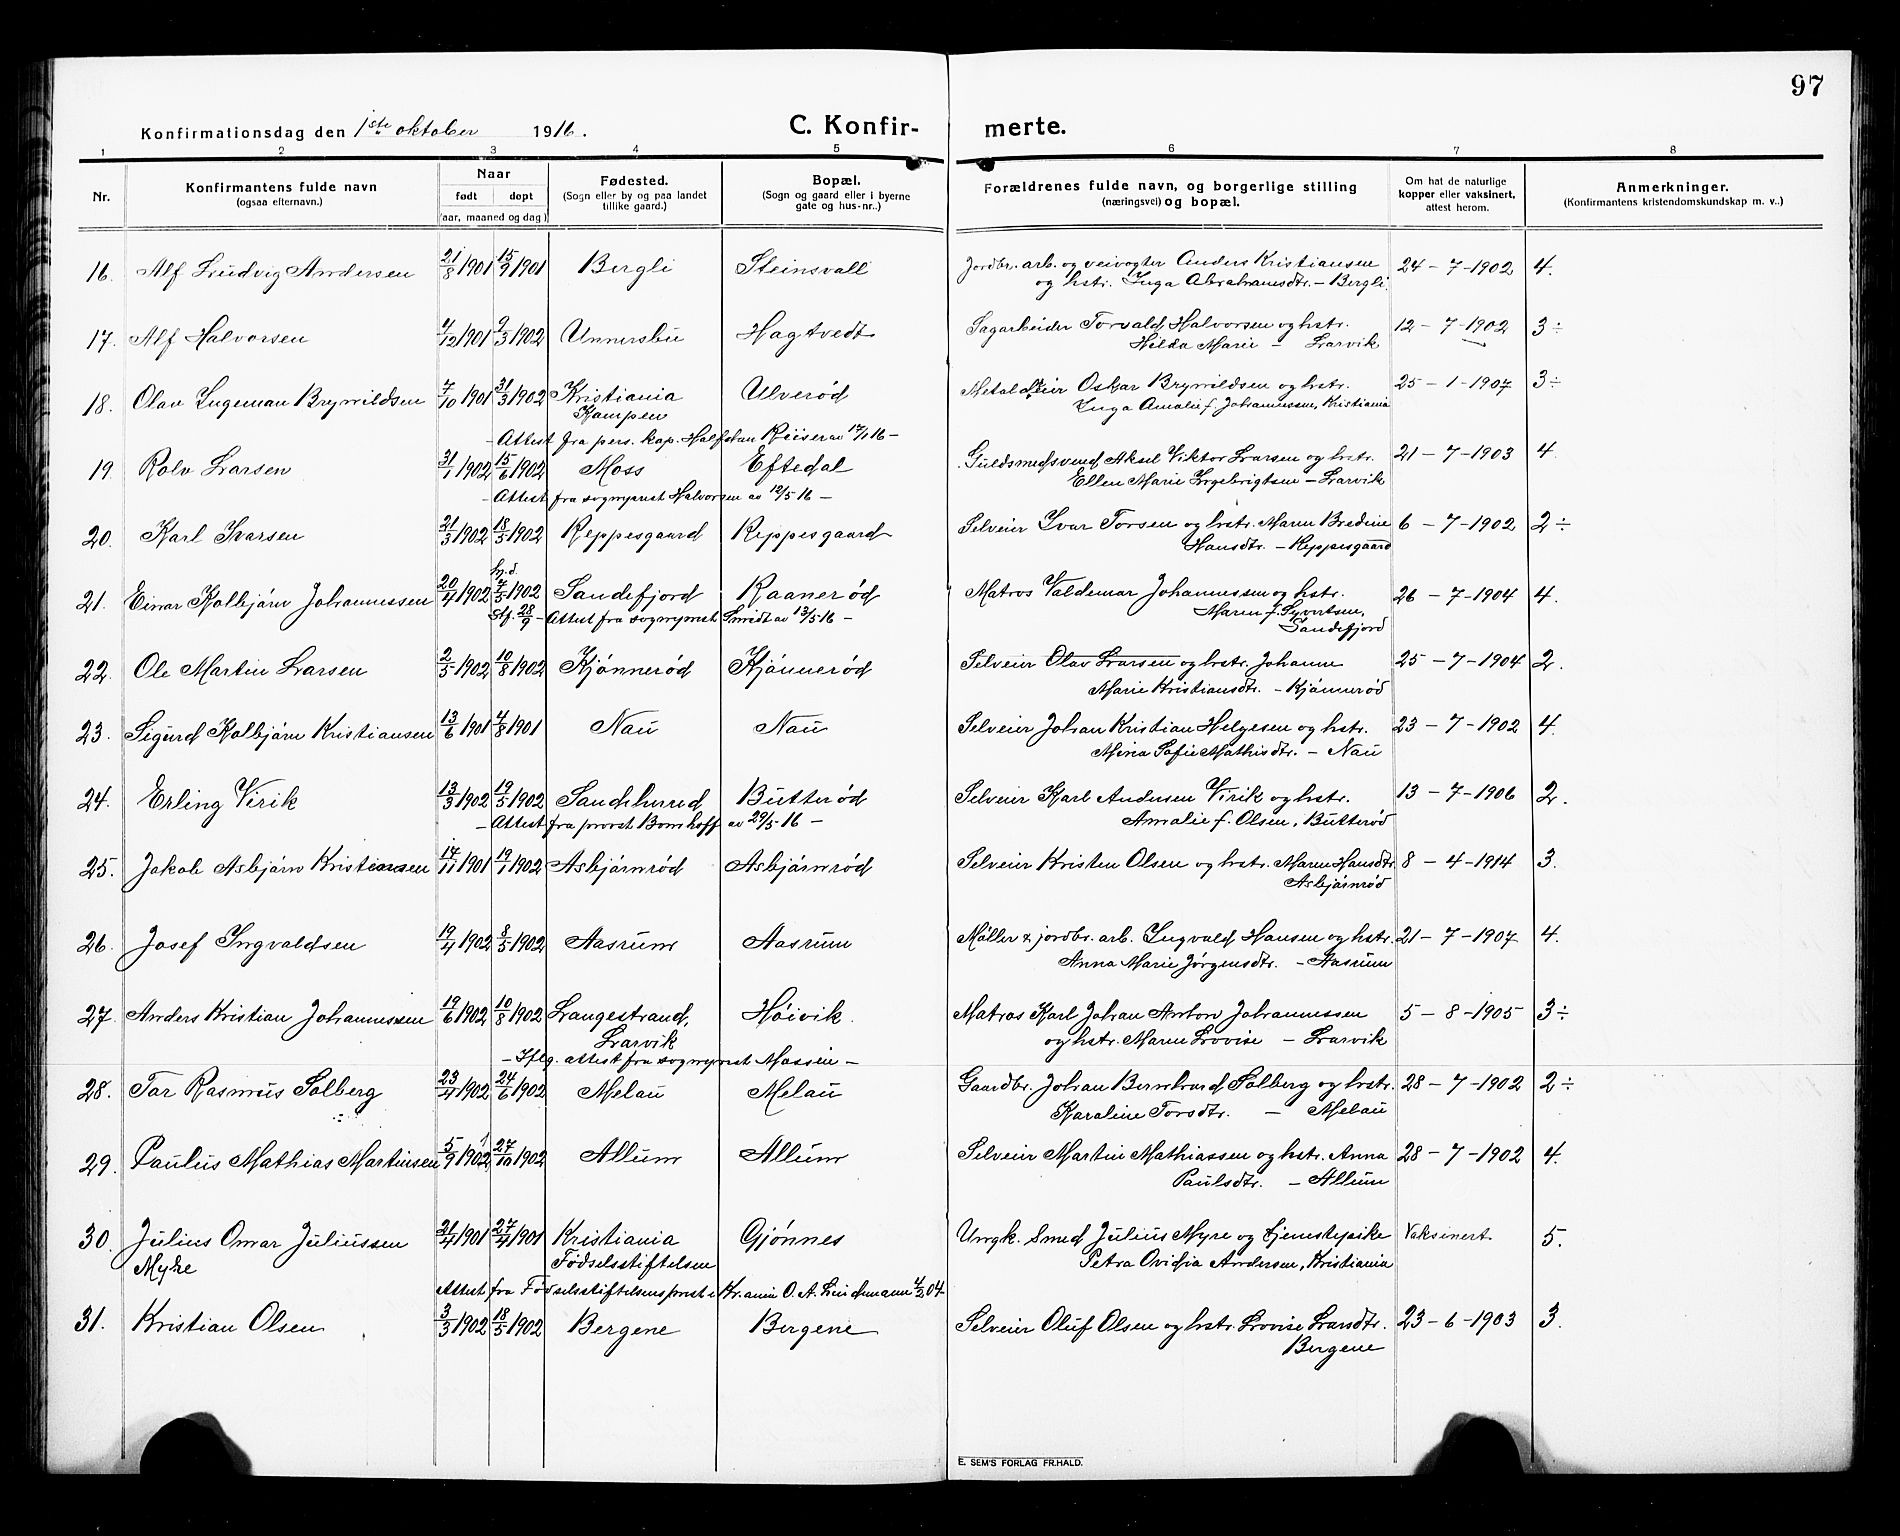 97
Konfirmationsdag den 1ste oktober 1916.
C. Konfir-
merte.
1 2 3 4 5 6 7 8
Nr.
Konfirmantens fulde navn
(ogsaa efternavn.)
Naar
født
døpt
(aar, maaned og dag)
Fødested.
(Sogn eller by og paa landet
tillike gaard.)
Bopæl.
(Sogn og gaard eller i byerne
gate og hus-nr.)
Forældrenes fulde navn, og borgerlige stilling
(næringsvei) og bopæl.
Om hat de naturlige
kopper eller vaksinert,
attest herom.
Anmerkninger.
(Konfirmantens kristendomskundskap m. v.)
16. Alf Ludvig Andersen 21/8 1901 15/9 1901 Bergli Steinsvall Jordbr. arb. og veivogter Anders Kristiansen 24-7-1902 4.
og hstr. Inga Abrahamsdtr. - Bergli.
17. Alf Halvorsen 4/12 1901 9/3 1902 Unnersbu Hagtvedt Sagarbeider Torvald Halvorsen og hstr. 12-7-1902 3÷
Hilda Marie - Larvik
18. Olav Ingeman Brynildsen 7/10 1901 31/3 1902 Kristiania Ulverød Oskar Brynildsen og hstr. 25-1-1907 3÷
Kampen Inga Amalie f. Johannessen, Kristiania
- Attest fra pers. kap. Halfdan Riiser av 17/1 16 -
19. Rolv Larsen 31/1 1902 15/6 1902 Moss Eftedal Guldsmedsvend Aksel Viktor Larsen og hstr. 21-7-1903 4.
Ellen Marie Ingebrigtsen - Larvik
- Attest fra sogneprest Halvorsen av 12/5 16 -
20. Karl Ivarsen 21/3 1902 18/5 1902 Reppesgaard Reppesgaard Selveier Ivar Torsen og hstr. Maren Bredine 6-7-1902 2÷
Hansdtr. - Reppesgaard
hj.d.
21. Einar Kolbjørn Johannessen 20/4 1902 7/5 1902 Sandefjord Raanerød Matros Valdemar Johannessen og hstr. 26-7-1904 4.
Stf. 28/9 - Attest fra sogneprest Smidt av 13/5 16 - Maren f. Syvertsen,
Sandefjord
22. Ole Martin Larsen 2/5 1902 10/8 1902 Kjønnerød Kjønnerød Selveier Olav Larsen og hstr. Johanne 25-7-1904 2.
Marie Kristiansdtr. - Kjønnerød
23. Sigurd Kolbjørn Kristiansen 13/6 1901 4/8 1901 Nau Nau Selveier Johan Kristian Helgesen og hstr. 23-7-1902 4.
Mina Sofie Mathisdtr. - Nau
24. Erling Virik 13/3 1902 19/5 1902 Sandeherred Butterød Selveier Karl Andersen Virik og hstr. 13-7-1906 2.
- Attest fra prost Bomhoff av 29/5-16 - Amalie f. Olsen, Butterød
25. Jakob Asbjørn Kristiansen 14/11 1901 19/1 1902 Asbjørnrød Asbjørnrød Selveier Kristen Olsen og hstr. Maren Hansdtr. 8-4-1914 3.
Asbjørnrød
26. Josef Ingvaldsen 19/4 1902 8/5 1902 Aasrum Aasrum Møller & jordbr. arb. Ingvald Hansen og hstr. 21-7-1907 4.
Anna Marie Jørgensdtr. - Aasrum
27. Anders Kristian Johannessen 19/6 1902 10/8 1902 Langestrand, Høivik Matros Karl Johan Anton Johannessen 5-8-1905 3÷
Larvik og hstr. Maren Lovise - Larvik
- Iflg. attest fra sogneprest Massin -
28. Tor Rasmus Solberg 23/4 1902 24/6 1902 Melau Melau Gaardbr. Johan Bernhard Solberg og hstr. 28-7-1902 2÷
Karoline Torsdtr. - Melau
29. Paulus Mathias Martinsen 5/9 1902 1 27/10 1902 Allum Allum Selveier Martin Mathiassen og hstr. Anna 28-7-1902 4.
Paulsdtr. - Allum
30. Julius Omar Juliussen 21/4 1901 27/4 1901 Kristiania Gjønnes Ungk. Smed Julius Myre og tjenestepike Vaksinert 5.
Myhre Fødselsstiftelsen Petra Ovidia Andersen, Kristiania
Attest fra Fødselsstiftelsens prest i Kr.ania O. A. Lindemann 4/2 04
31. Kristian Olsen 3/3 1902 18/5 1902 Bergene Bergene Selveier Oluf Olsen og hstr. Lovise Larsdtr. 23-6-1903 3.
Bergene
E. SEM'S FORLAG FR.HALD.